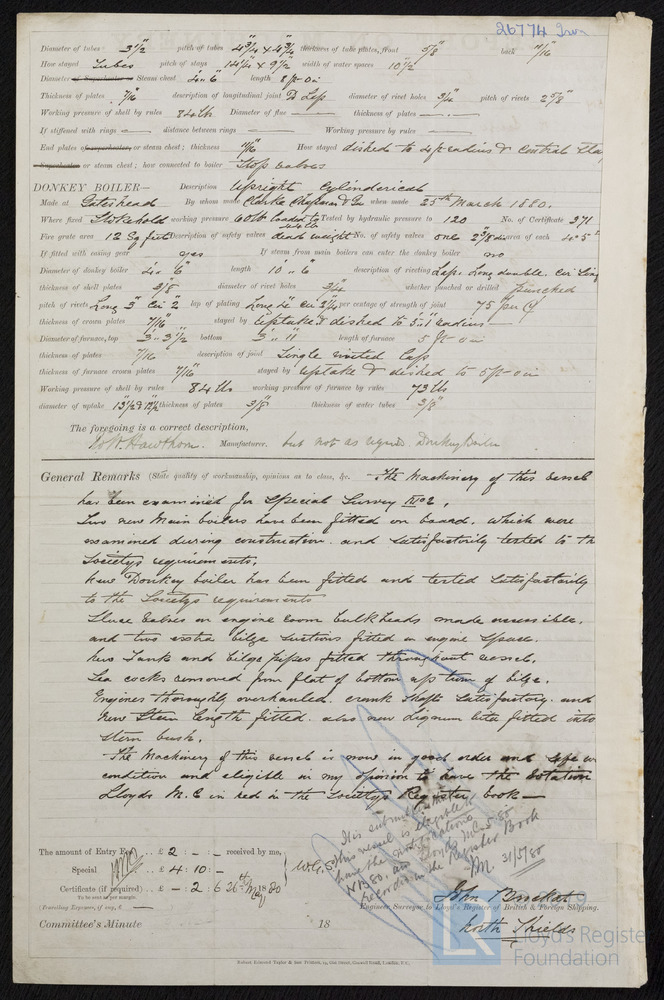 26774 Iron
Diameter of tubes 3 1/2" pitch of tubes 4 3/4 x 4 3/4" thickness of tube plates, front 5/8" back 11/16"
How stayed Tubes pitch of stays 14 1/4 x 9 1/2" width of water spaces 10 1/2"
Diameter of Superheater or Steam chest 4'0" 6" length 8 ft 0 in
Thickness of plates 7/16" description of longitudinal joint D Lap diameter of rivet holes 3/4" pitch of rivets 2 5/8"
Working pressure of shell by rules 84 lb Diameter of flue — thickness of plates —
If stiffened with rings — distance between rings — Working pressure by rules —
End plates of superheater, or steam chest; thickness 7/16" How stayed dished to 4 ft radius & central stay
Superheater or steam chest; how connected to boiler Stop valves
DONKEY BOILER— Description Upright Cylinderical
Made at Gateshead By whom made Clarke Chapman & Co when made 25th March 1880.
Where fixed Stokehold working pressure 60 lb loaded to 44 lb Tested by hydraulic pressure to 120 No. of Certificate 371
Fire grate area 12 Sq feet Description of safety valves dead weight No. of safety valves one 2 3/8 dia area of each 4.5"
If fitted with easing gear yes If steam from main boilers can enter the donkey boiler no
Diameter of donkey boiler 4' 6" length 10' 6" description of riveting Lap. Long double. Cir Sing
thickness of shell plates 3/8" diameter of rivet holes 3/4" whether punched or drilled punched
pitch of rivets Long 3" Cir 2" lap of plating Long 4" Cir 2 1/4" per centage of strength of joint 75 per ct
thickness of crown plates 7/16" stayed by Uptake & dished to 5'.1" radius
Diameter of furnace, top 3' 3 1/2" bottom 3' 11" length of furnace 5 ft 0 in
thickness of plates 7/16 description of joint Single riveted Lap
thickness of furnace crown plates 7/16" stayed by uptake & dished to 5 ft 0 in
Working pressure of shell by rules 84 lbs working pressure of furnace by rules 73 lb
diameter of uptake 13 1/2 & 12 1/2 thickness of plates 3/8" thickness of water tubes 3/8"
The foregoing is a correct description,
Hawthorn. Manufacturer. but not as regards Donkey Boiler
General Remarks (State quality of workmanship, opinions as to class, &c. The Machinery of this vessel
has been examined for Special Survey No 2.
Two new Main boilers have been fitted on board. which were
examined during construction. and satisfactorily tested to the
Societys requirements.
New Donkey boiler has been fitted and tested satisfactorily
to the Societys requirements
Sluice Valves on engine room bulkheads made accessible.
and two extra bilge suctions fitted in engine space.
New Tank and bilge pipes fitted throughout vessel.
Sea cocks removed from flat of bottom up turn of bilge.
Engines thoroughly overhauled. crank shafts satisfactory. and
New Stern length fitted. also new lignum vitæ fitted into
stern bush.
The Machinery of this vessel is now in good order and safe w
condition and eligible in my opinion to have the notation
Lloyds M.C in red in the Societys Register book—
It is submitted that
this vessel is eligible to
have the notations
NB 80. and Lloyds MC 5.80
recorded in the Register Book
M. 31/5/80
The amount of Entry Fee .. £ 2 : - : - received by me,
Special .. £ 4 : 10 : -
Certificate (if required) .. £ - : 2 : 6 26th May 1880
To be sent as per margin.
(Travelling Expenses, if any, £ )
John Brockat
Engineer Surveyor to Lloyd's Register of British & Foreign Shipping.
North Shields
Committee's Minute 18
© 2019
LR
Lloyd's Register
Foundation